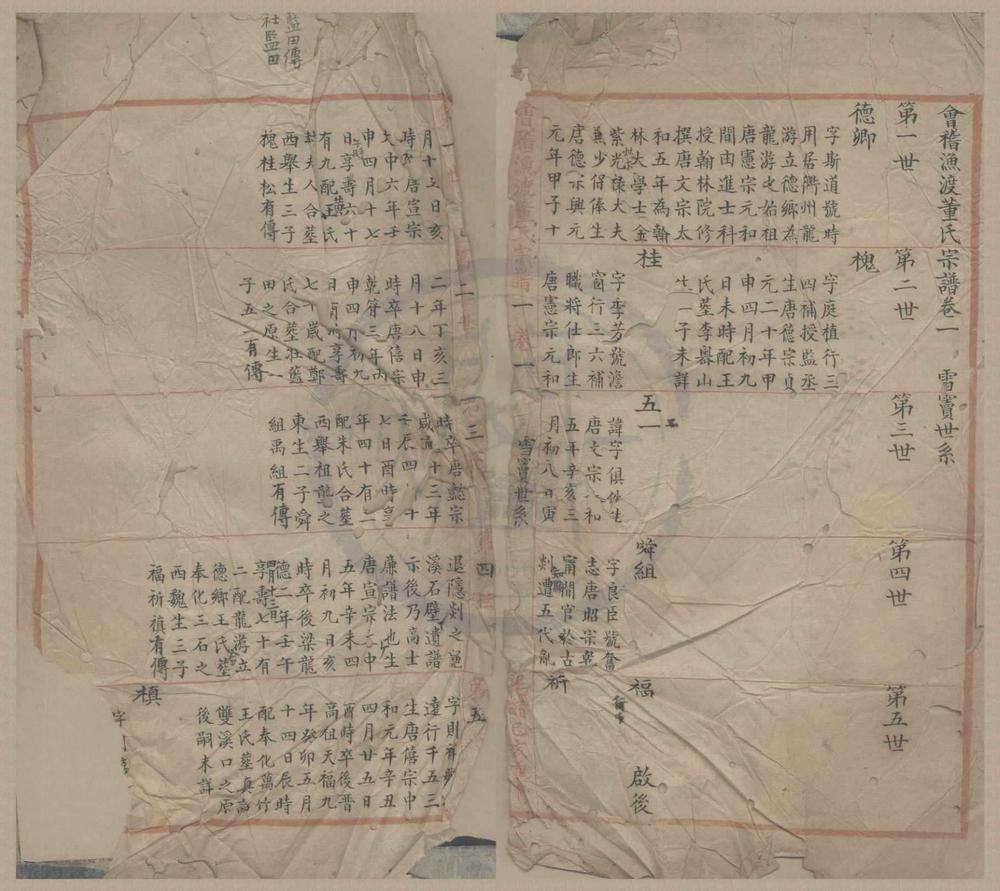 會稽漁渡董氏宗譜卷一 雪竇世系
第一世
第二世
第三世
第四世
第五世
德卿
字斯道號時
用居衢州龍
游立德鄉為
龍游之始祖
唐憲宗元和
間由進士科
授翰林院修
撰唐文宗太
和五年為翰
林大學士金
紫光祿大夫
兼少保俸生
唐德宗興元
元年甲子十
月十五日亥
時卒唐宣宗
大中六年壬
申四月十七
日享壽六十
有九配王氏
封夫人合葬
西舉生三子
槐桂松有傳
槐
字庭植行三
四補授監丞
生唐德宗貞
元二十年甲
申四月初九
日未時配王
氏葬李嶴山
生一子未詳
桂
字季芳號澹
窗行三六補
職將仕郎生
唐憲宗元和
二年丁亥三
月十八日申
時卒唐僖宗
乾符三年丙
申四月初九
日享壽
七十歲配鄭
氏合葬壯籃
田之原生一
子五一有傳
五一
諱字俱佚生
唐文宗和
五年辛亥三
月初八日寅
時卒唐懿宗
咸通十三年
壬辰四月十
七日酉時享
年四十有二
配朱氏合葬
西舉祖龍之
東生二子舜
組禹組有傳
舜組
字良臣號奮
志唐昭宗乾
甯間官於古
剡遭五代亂
退隱剡之
溪石壁遺譜
示後乃高士
廉譜法也生
唐宣宗大中
五年辛未四
月初九日亥
時卒後梁龍
德二年壬午
享壽七十有
二配龍游立
德鄉王氏葬
奉化三石之
西魏生三子
福祈禛有傳
福
啟後
祈
字則祥
達行千五三
生唐僖宗中
和元年辛丑
四月廿五日
酉時卒後晉
高祖天福九
年癸卯五月
十四日辰時
配奉化萬竹
王氏葬真詔
雙溪口之原
後嗣未詳
禛
雪竇世系
藍田傳
社監田